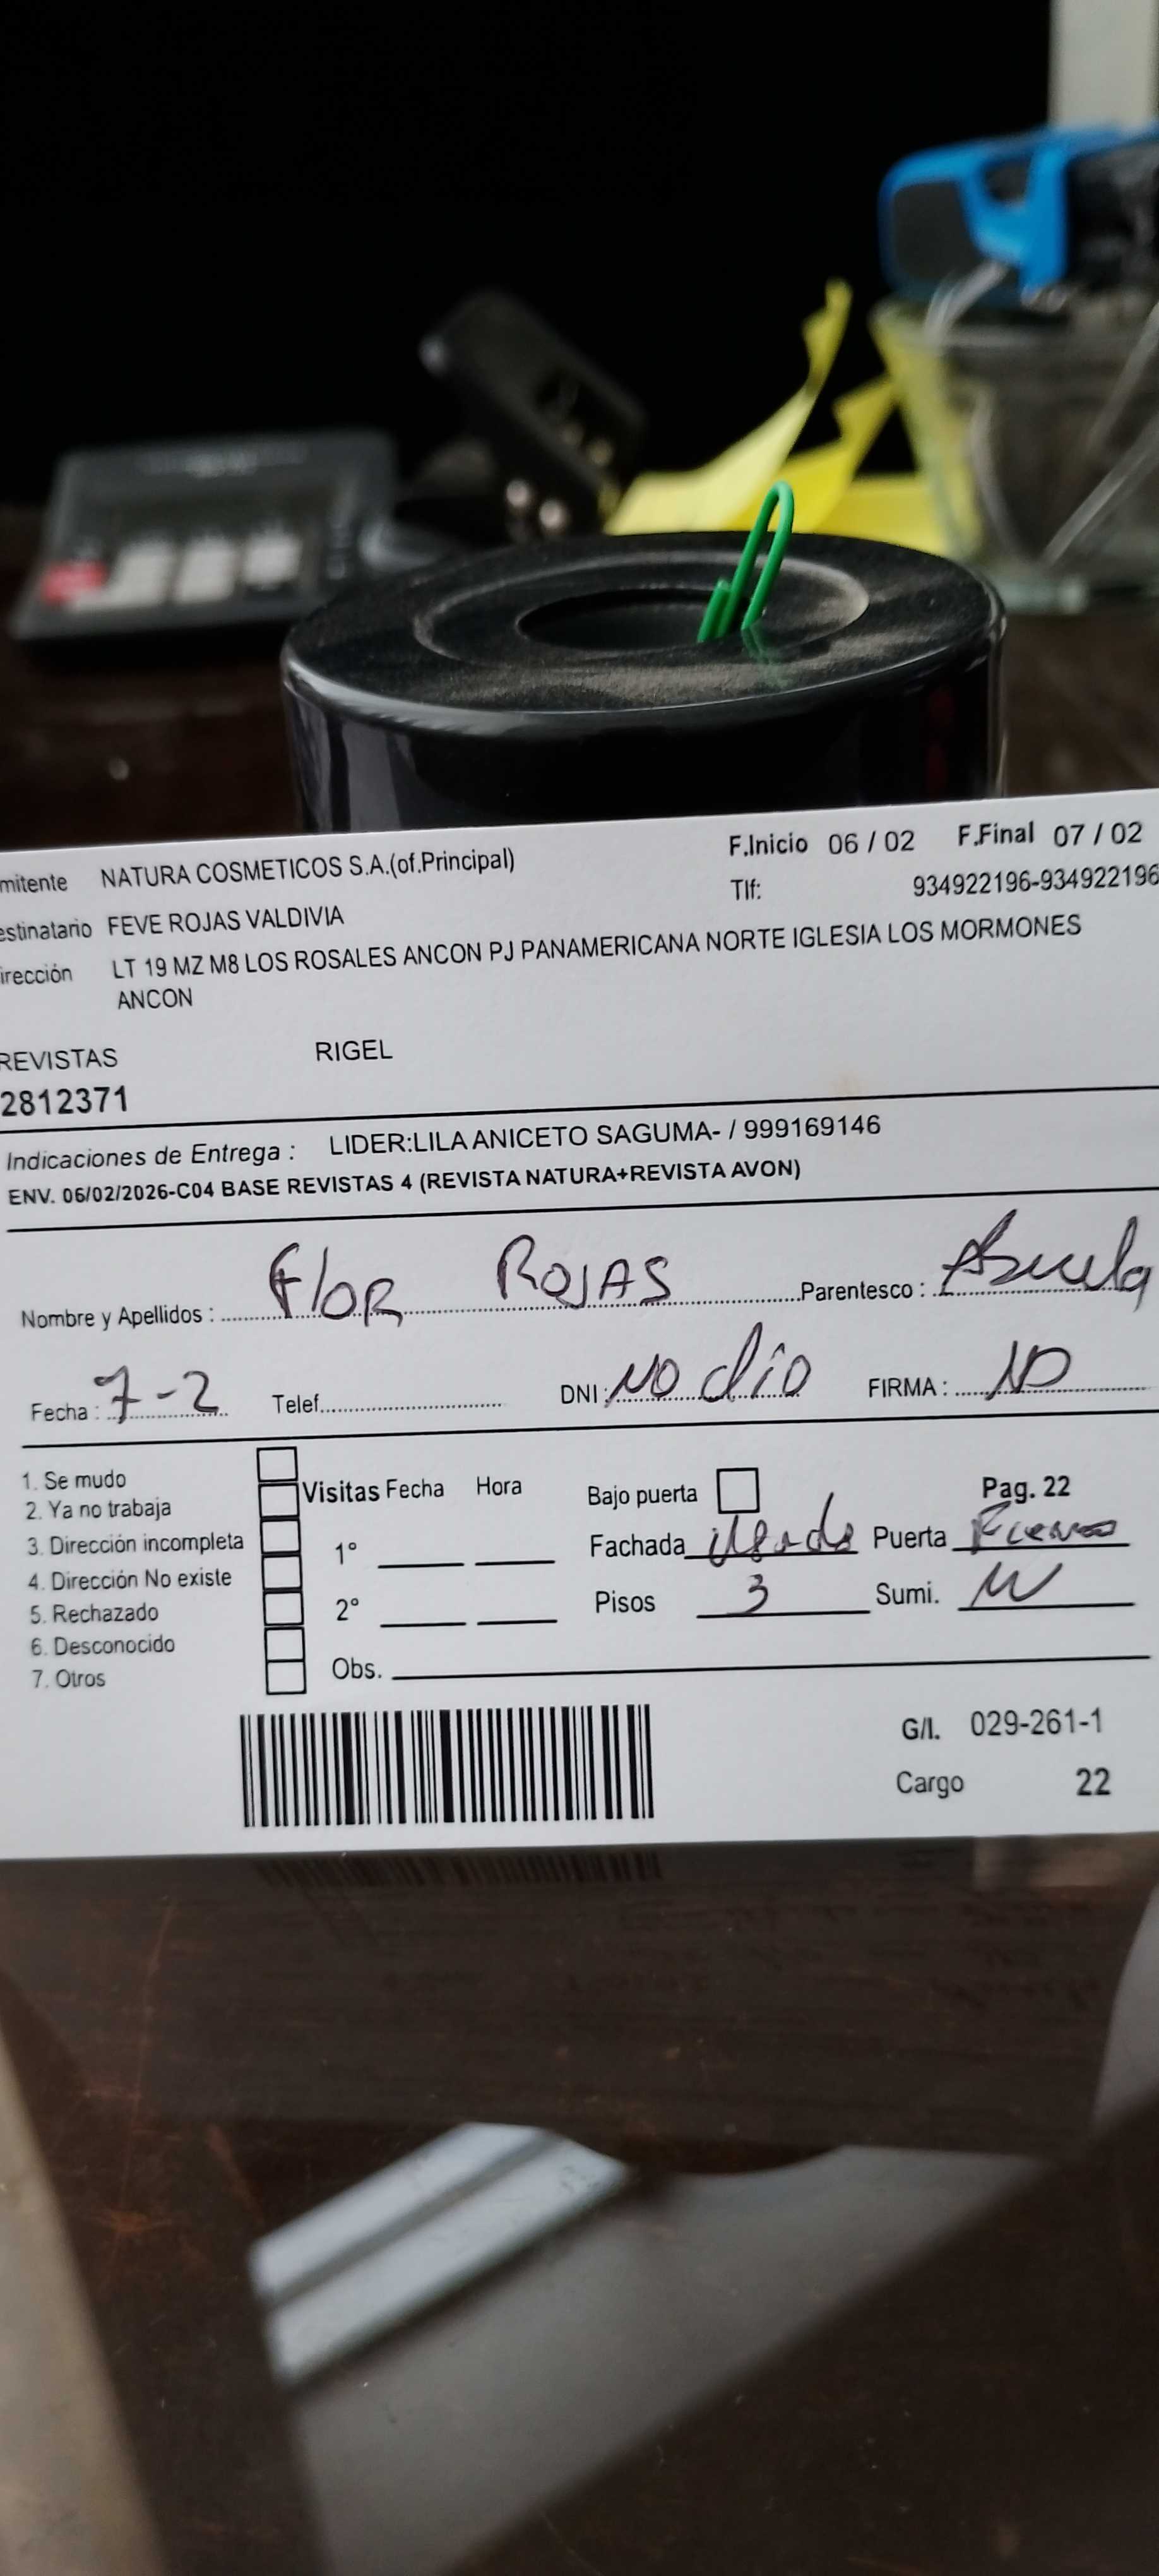 mitente NATURA COSMETICOS S.A.(of.Principal) F.Inicio 06 / 02 F.Final 07 / 02
estinatario FEVE ROJAS VALDIVIA Tlf: 934922196-934922196
irección LT 19 MZ M8 LOS ROSALES ANCON PJ PANAMERICANA NORTE IGLESIA LOS MORMONES
ANCON
REVISTAS RIGEL
2812371
Indicaciones de Entrega : LIDER:LILA ANICETO SAGUMA- / 999169146
ENV. 06/02/2026-C04 BASE REVISTAS 4 (REVISTA NATURA+REVISTA AVON)
Nombre y Apellidos : Flor ROJAS Parentesco : Abuela
Fecha : 7-2 Telef. DNI: NO dio FIRMA : NO
1. Se mudo
2. Ya no trabaja
3. Dirección incompleta
4. Dirección No existe
5. Rechazado
6. Desconocido
7. Otros
Visitas Fecha Hora
1°
2°
Obs.
Bajo puerta Pag. 22
Fachada Puerta
Pisos 3 Sumi.
G/I. 029-261-1
Cargo 22